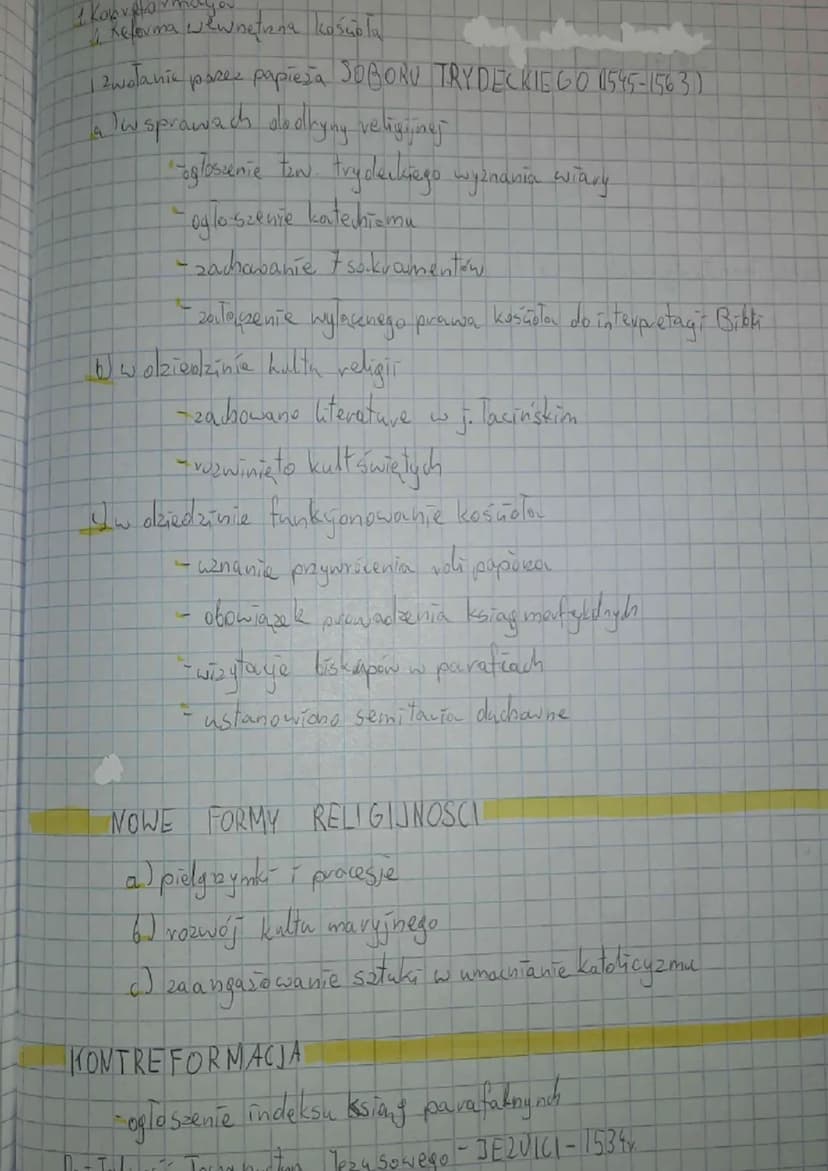 Reforma wewnętrzna kościoła
1 zwołanie przez papieża SOBORU TRYDECKIEGO (1545-1563)
a) w sprawach doktryny religijnej
- ogłoszenie tzw trydeckiego wyznania wiary
- ogłoszenie katechizmu
- zachowanie 7 sakramentów
- wyłącznego prawa kościoła do interpretacji Bibli
b) w dziedzinie kultu religii
- zachowano literature w j. łacińskim
- rozwinięto kult świętych
c) w dziedzinie funkcjonowanie kościoła
- uznanie przywrócenia roli
- obowiązek prowadzenia ksiąg
- wizytacje biskupów w parafiach
- ustanowiono duchowne
NOWE FORMY RELIGIJNOSCI
a) pielgrzymki i procesje
b) rozwój kultu maryjnego
c) zaangażowanie sztuki w umacnianie katolicyzmu
KONTREFORMACJA
- ogłoszenie indeksu ksiąg
Jezusowego - JEZUICI - 1534r